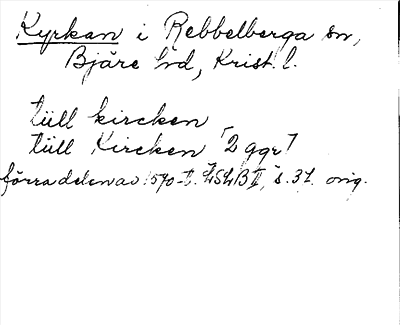 Kyrkan i Rebbelberga sn,
Bjäre hd, Krist. l.
tüll kircken
tüll Kircken [2 ggr]
förra delen av 1570-t. LSLB II, s. 37. orig.